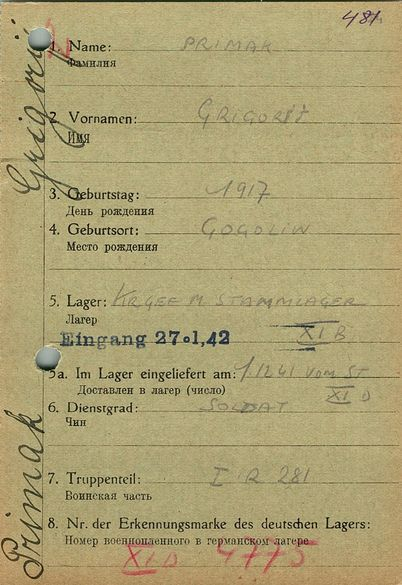 481
1. Name: PRIMAK
Фамилия
2. Vornamen: GRIGORIJ
Имя
3. Geburtstag: 1917
День рождения
4. Geburtsort: GOGOLIN
Место рождения
5. Lager: STAMMLAGER
Лагер
Eingang 27.1.42 XI B
5a. Im Lager eingeliefert am: 1.12.41 VOM ST
Доставлен в лагер (число) XI D
6. Dienstgrad: SOLDAT
Чин
7. Truppenteil: I R 281
Воинская часть
8. Nr. der Erkennungsmarke des deutschen Lagers:
Номер военнопленного в германском лагере
XI D 4775
Primak Grigorij